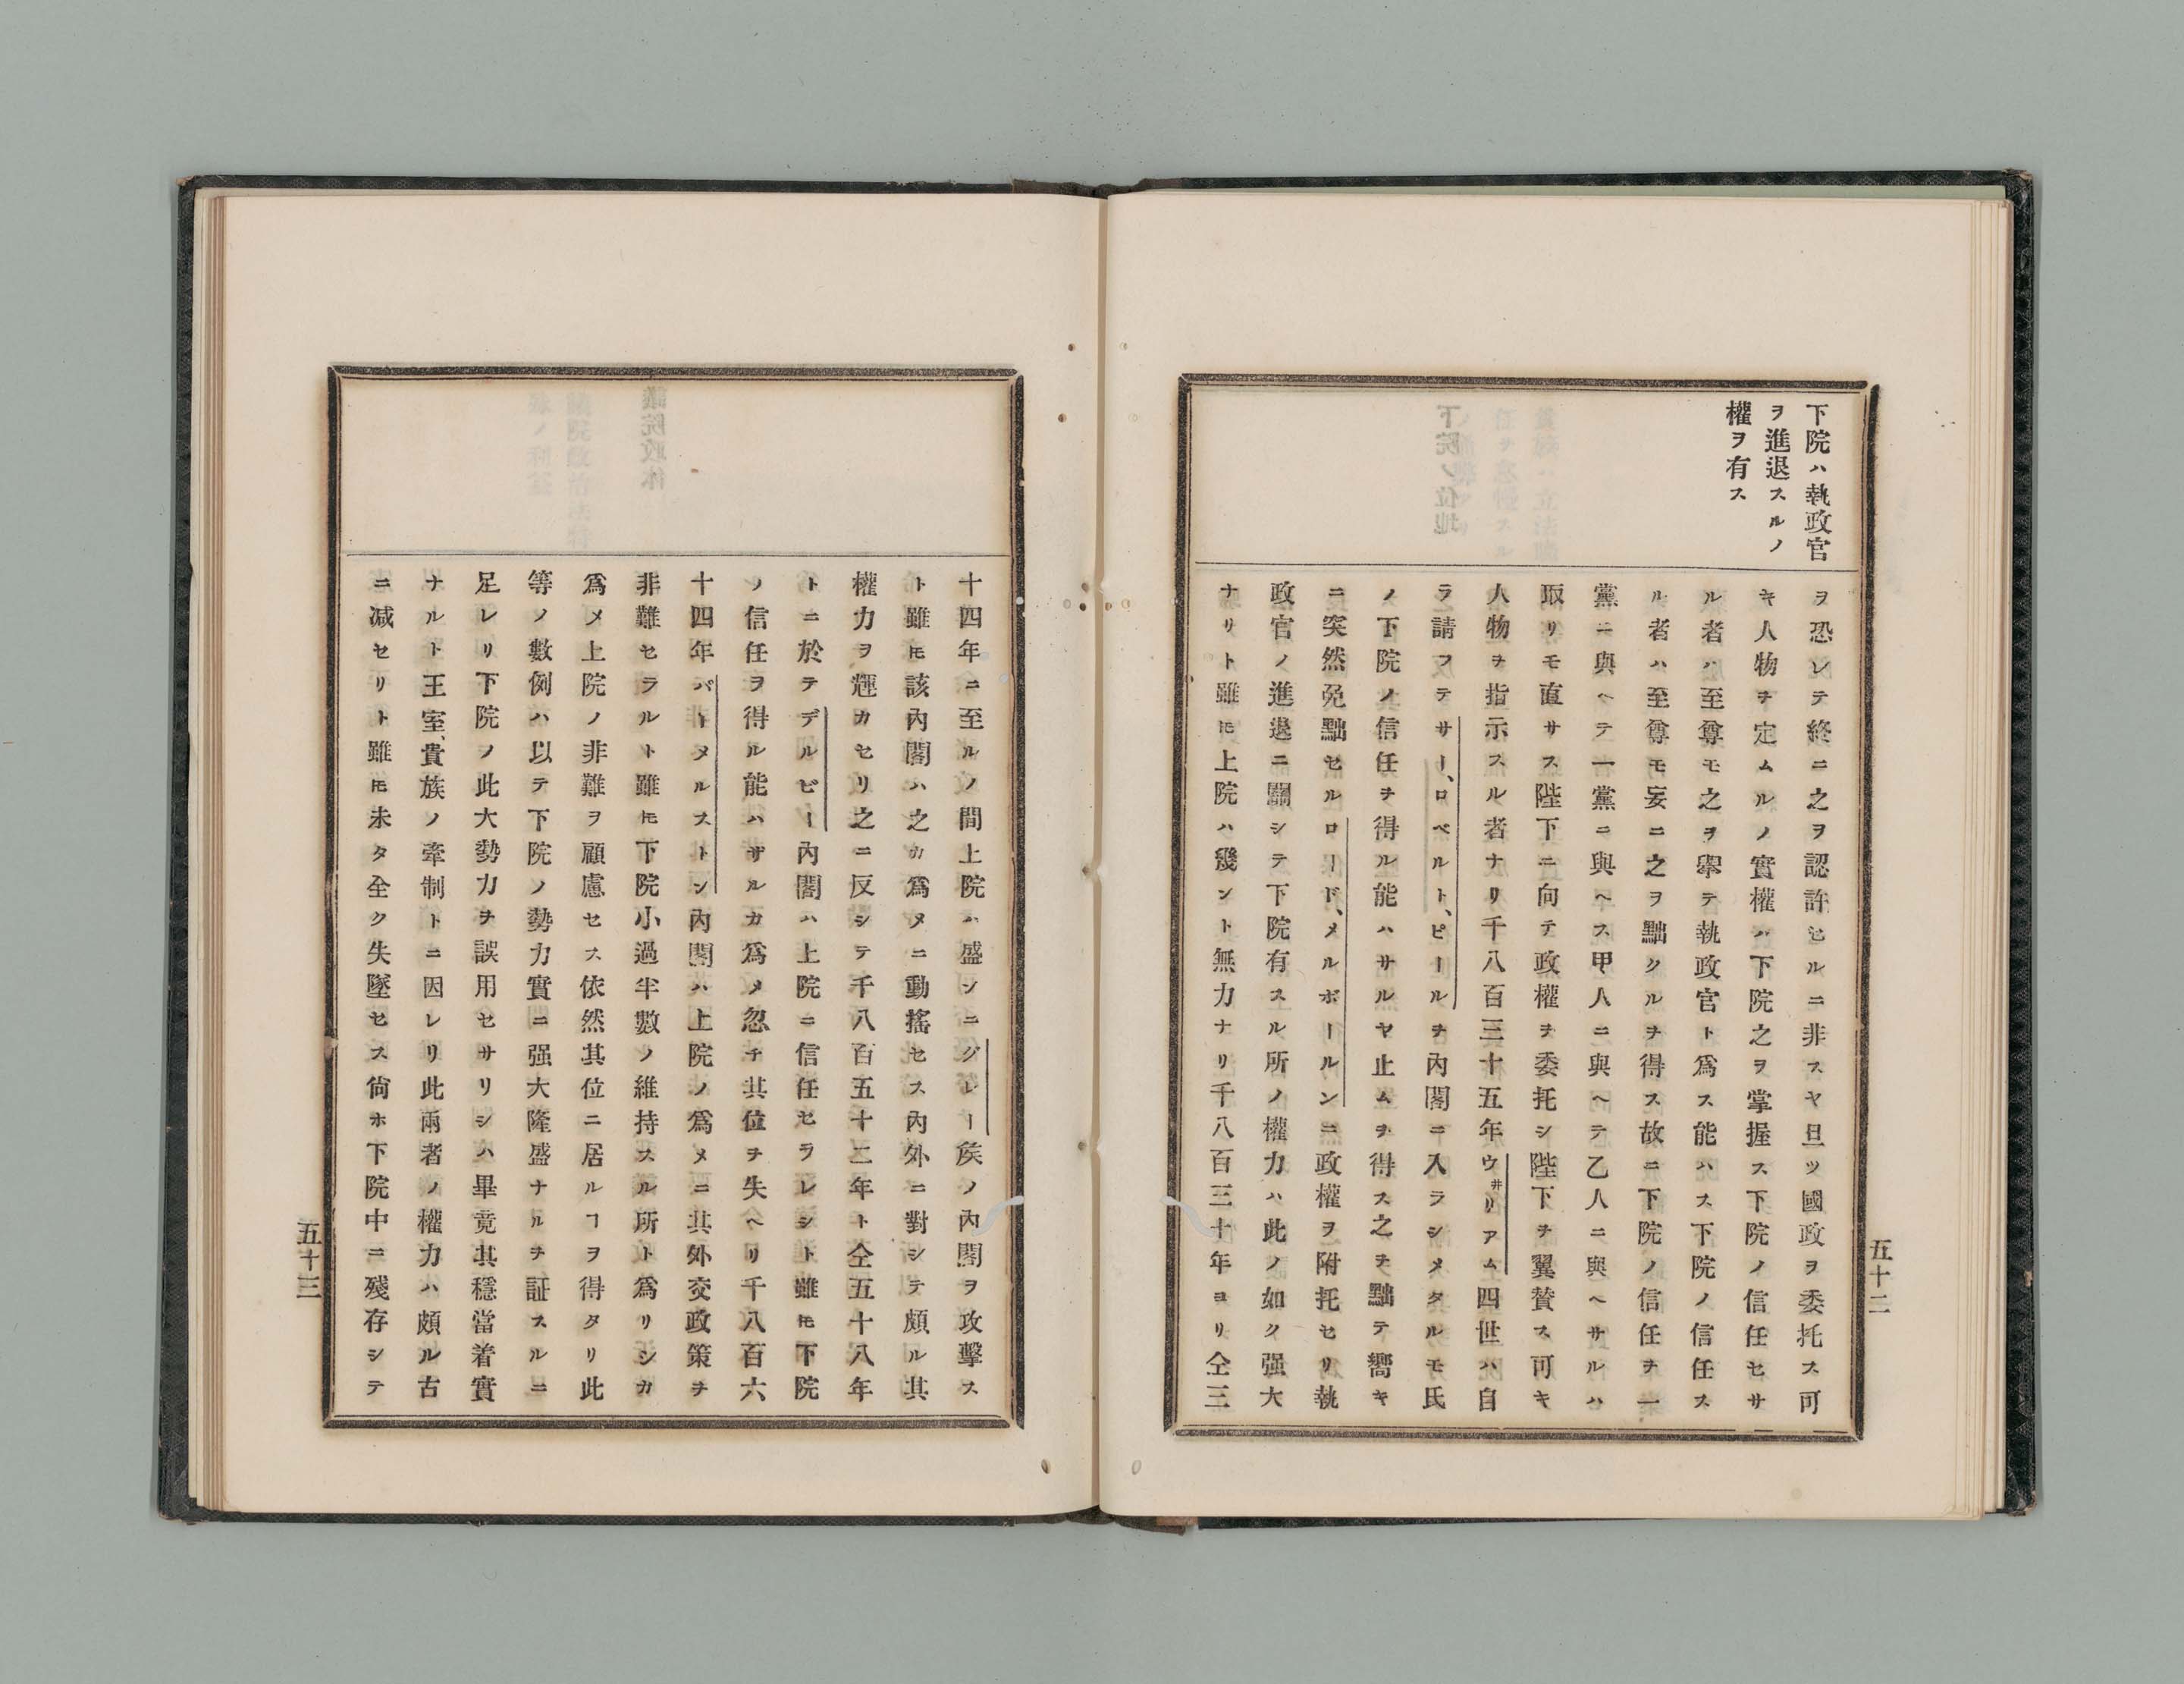 下院ハ執政官
ヲ進退スルノ
權ヲ有ス
ヲ恐レテ終ニ之ヲ認許セルニ非スヤ且ツ國政ヲ委托ス可
キ人物ヲ定ムルノ實權ハ下院之ヲ掌握ス下院ノ信任セサ
ル者ハ至尊モ之ヲ擧テ執政官ト爲ス能ハス下院ノ信任ス
ル者ハ至尊モ妄ニ之ヲ黜クルヲ得ス故ニ下院ノ信任ヲ一
黨ニ與ヘテ一黨ニ與ヘス甲人ニ與ヘテ乙人ニ與ヘサルハ
取リモ直サス陛下ニ向テ政權ヲ委托シ陛下ヲ翼賛ス可キ
人物ヲ指示スル者ナリ千八百三十五年ウ井リアム四世ハ自
ラ請フテサー、ロベルト、ピールヲ內閣ニ入ラシメタルモ氏
ノ下院ノ信任ヲ得ル能ハサルヤ止ムヲ得ス之ヲ黜テ嚮キ
ニ突然免黜セルロード、メルボールンニ政權ヲ附托セリ執
政官ノ進退ニ關シテ下院有スル所ノ權力ハ此ノ如ク强大
ナリト雖モ上院ハ幾ント無力ナリ千八百三十年ヨリ仝三
五十二
十四年ニ至ルノ間上院ハ盛ンニグレー矦ノ內閣ヲ攻擊ス
ト雖モ該內閣ハ之カ爲メニ動搖セス內外ニ對シテ頗ル其
權力ヲ輝カセリ之ニ反シテ千八百五十二年ト仝五十八年
トニ於テデルビー內閣ハ上院ニ信任セラレシト雖モ下院
ノ信任ヲ得ル能ハサルカ爲メ忽チ其位ヲ失ヘリ千八百六
十四年バーメルストン內閣ハ上院ノ爲メニ其外交政策ヲ
非難セラルト雖モ下院小過半數ノ維持スル所ト爲リシカ
爲メ上院ノ非難ヲ顧慮セス依然其位ニ居ルヿヲ得タリ此
等ノ數例ハ以テ下院ノ勢力實ニ强大隆盛ナルヲ証スルニ
足レリ下院ノ此大勢力ヲ誤用セサリシハ畢竟其穩當着實
ナルト王室、貴族ノ牽制トニ因レリ此兩者ノ權力ハ頗ル古
ニ減セリト雖モ未タ全ク失墜セス尙ホ下院中ニ殘存シテ
五十三